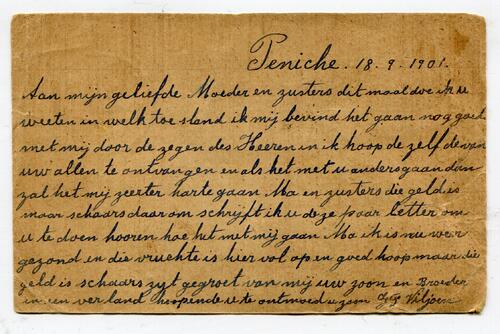 Peniche. 18. 9. 1901.
Aan mijn geliefde Moeder en zusters dit maal doe ik u
weeten in welk toe stand ik mij bevind het gaan nog goed
met mij door de zegen des Heeren in ik hoop de zelf de van
uw allen te ontvangen en als het met u anders gaan dan
zal het mij zeer ter harte gaan Ma en zusters die geld is
maar schaars daar om schrijft ik u deze paar letter om
u te doen hooren hoe het met mij gaan Ma ik is nu weer
gezond en die vruchte is hier vol op en goed koop maar die
geld is schaars zyt gegroet van mij uw zoon en Broeder
in een ver land hoopende u te ontmoed u zoon Viljoen